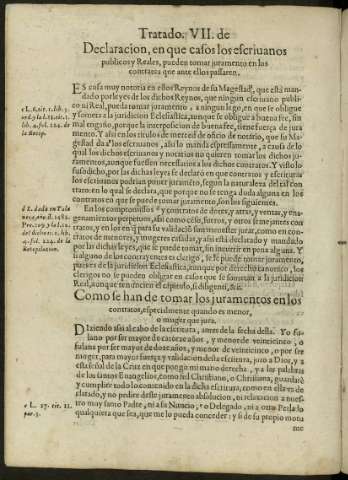 Tratado. VII. de
Declaracion, en que casos los escriuanos
publicos y Reales, pueden tomar juramento en los
contratos que ante ellos passaren.
ES cosa muy notoria en estos Reynos de su Magestad, que està man-
dado por leyes de los dichos Reynos, que ningun escriuano publi-
co ni Real, pueda tomar juramento, a ningun lego, en que se obligue
y someta a la jurisdicion Ecclesiastica, aunque se obligue a buena fee, sin
mal engaño, porque la interposicion de buena fee, tiene fuerça de jura-
mento. Y aun en los titulos de merced de oficio de notario, que su Ma-
gestad da a los escriuanos, assi lo manda espressamente, a causa de lo
qual los dichos escriuanos y notarios no quieren tomar los dichos jura-
mentos, aunque fuessen necessarios a los dichos contratos. Y visto lo
susodicho, por las dichas leyes se declarò en que contratos y escrituras
los escriuanos podrian poner juramento, segun la naturaleza del tal con-
trato en lo qual se declara, que porque no se tenga duda alguna en los
contratos en que se pueden tomar juramento, son los siguientes.
En los compromissos y contratos de dotes, y arras, y ventas, y ena-
genamientos perpetuos, assi como censos, fueros, y otros semejantes con-
tratos, y en los en que para su validacion son menester jurar, como en con-
tratos de menores, y mugeres casadas, y assi està declarado y mandado
por las dichas leyes, que se puede tomar, sin incurrir en pena alguna. Y
si alguno de los contrayentes es clerigo, se le puede tomar juramento,
pues es de la jurisdicion Ecclesiastica, aunque por derecho canonico, los
clerigos no se pueden obligar en casos que se sometan a la jurisdicion
Real, aunque renuncien el capitulo, si diligenti, &c.
Como se han de tomar los juramentos en los
contratos, especialmente quando es menor,
o muger que jura.
DIziendo assi al cabo de la escritura, antes de la fecha della. Yo fu-
lano por ser mayor de catorze años, y menor de veinticinco, o
fulana por ser mayor de doze años, y menor de veinticinco, o por ser
muger, para mayor fuerça y validacion desta escritura, juro a Dios, y a
esta señal de la Cruz en que pongo mi mano derecha, y a las palabras
de los santos Euangelios, como fiel Christiano, o Christiana, guardarè
y cumplirè todo lo contenido en la dicha escritura, como en ella es de-
clarado, y no pedire deste juramento absolucion, ni relaxacion a nues-
tro muy santo Padre, ni a su Nuncio, o Delegado, ni a otro Perlado
qualquiera que sea, que me lo pueda conceder: y si de su propio motu
me